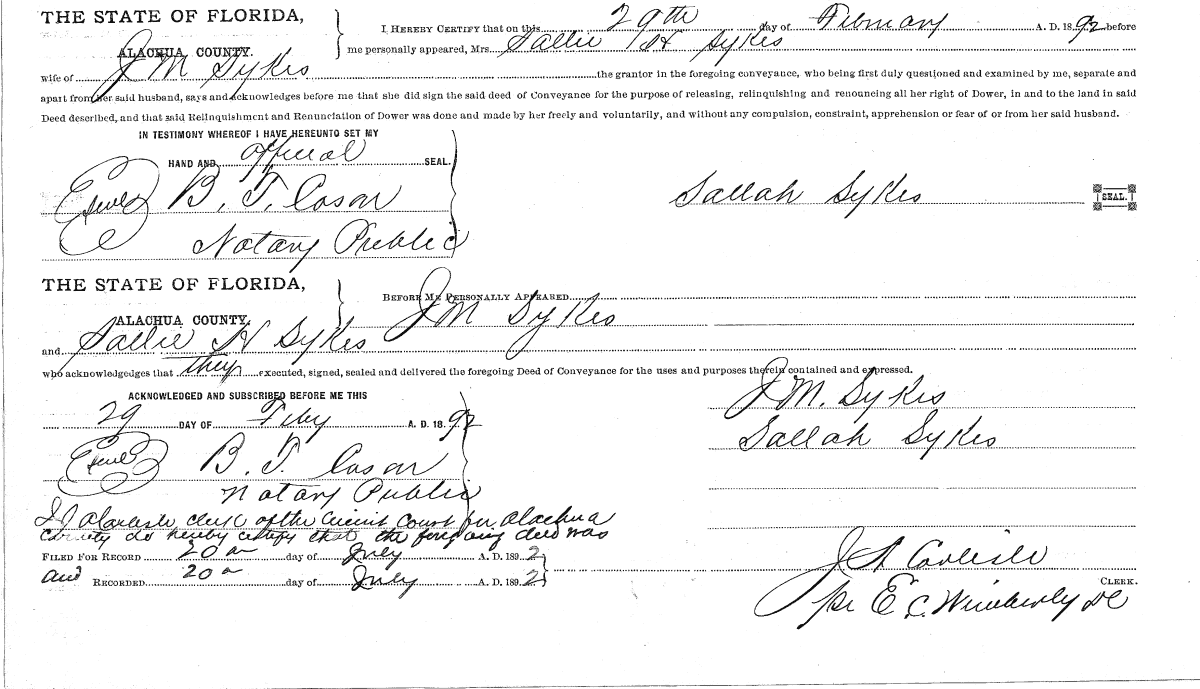 THE STATE OF FLORIDA,
ALACHUA COUNTY.
I, HEREBY CERTIFY that on this 29th day of February A. D. 1892 before
me personally appeared, Mrs. Sallie H Sykes
wife of J M Sykes the grantor in the foregoing conveyance, who being first duly questioned and examined by me, separate and
apart from her said husband, says and acknowledges before me that she did sign the said deed of Conveyance for the purpose of releasing, relinquishing and renouncing all her right of Dower, in and to the land in said
Deed described, and that said Relinquishment and Renunciation of Dower was done and made by her freely and voluntarily, and without any compulsion, constraint, apprehension or fear of or from her said husband.
IN TESTIMONY WHEREOF I HAVE HEREUNTO SET MY
HAND AND official SEAL.
B. T.
Notary Public
Sallah Sykes SEAL.
THE STATE OF FLORIDA,
ALACHUA COUNTY,
BEFORE ME PERSONALLY APPEARED J M Sykes
and Sallie H Sykes
who acknowledges that they executed, signed, sealed and delivered the foregoing Deed of Conveyance for the uses and purposes therein contained and expressed.
ACKNOWLEDGED AND SUBSCRIBED BEFORE ME THIS
29 DAY OF Feby A. D. 1892
B. T.
Notary Public
J. M. Sykes
Sallah Sykes
Carlisle clerk of the Circuit Court for Alachua
County do hereby certify that the foregoing deed was
FILED FOR RECORD 20 day of July A. D. 1892
and RECORDED 20 day of July A. D. 1892
J A Carlisle
CLERK.
per E C. Wimberly DC